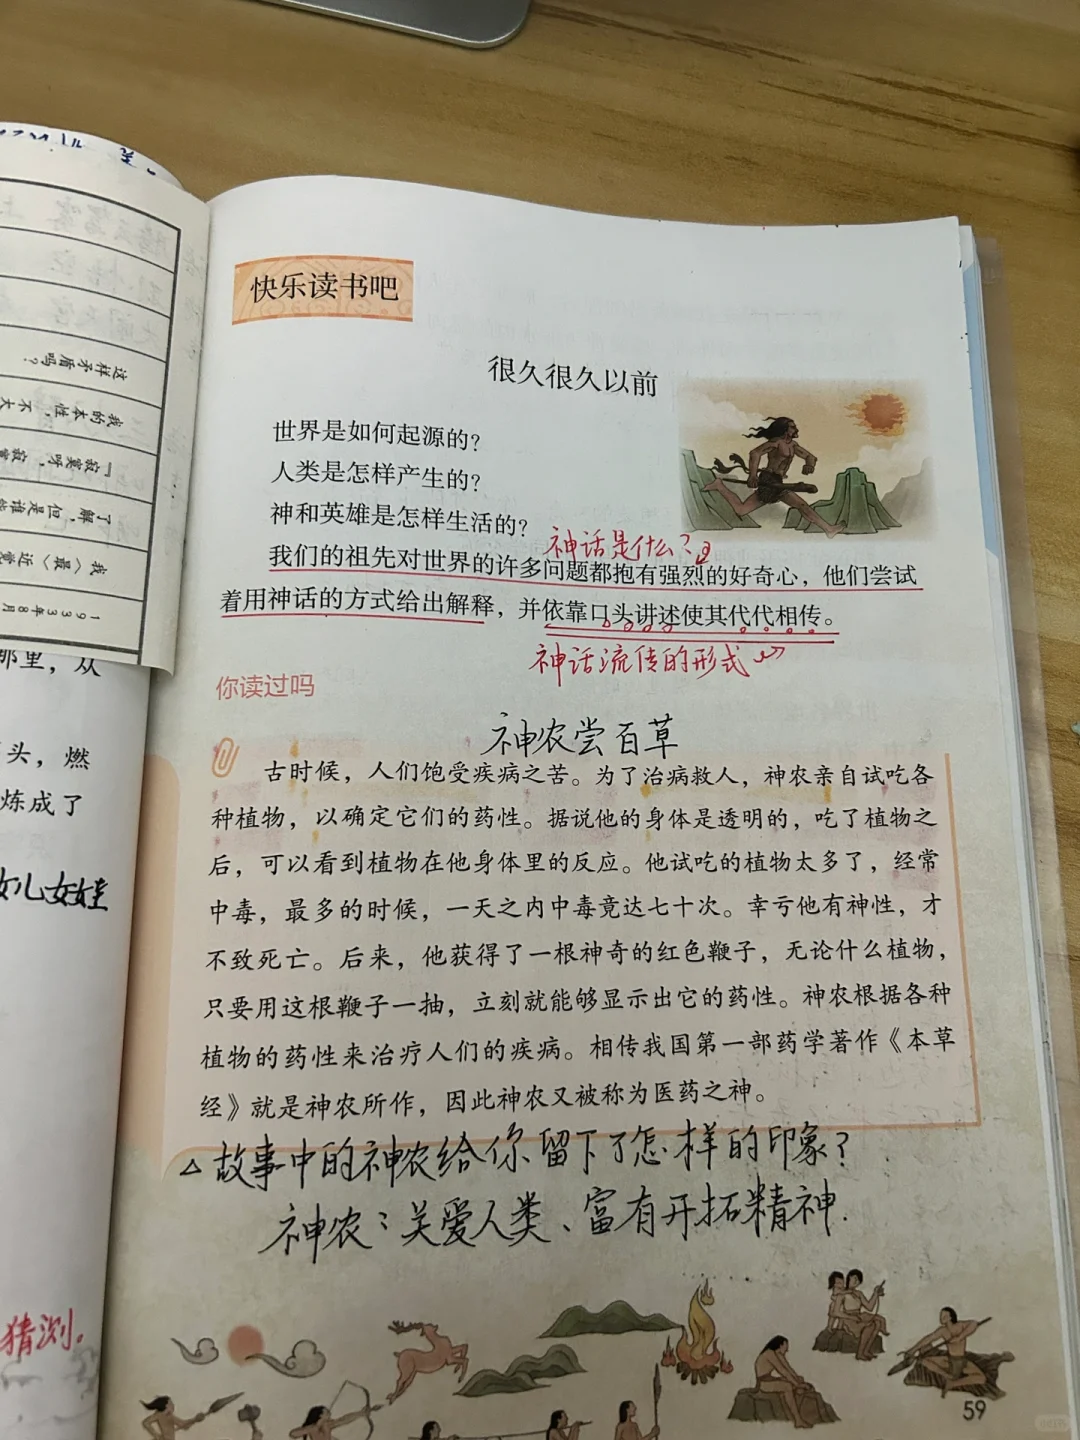 这样矛盾吗？
我的本性，不大
了解，但是谁能
1933年8月
那里，从
头，燃
炼成了
女儿女娃
猜测。
快乐读书吧
很久很久以前
世界是如何起源的？
人类是怎样产生的？
神和英雄是怎样生活的？
神话是什么？
我们的祖先对世界的许多问题都抱有强烈的好奇心，他们尝试
着用神话的方式给出解释，并依靠口头讲述使其代代相传。
神话流传的形式
你读过吗
神农尝百草
古时候，人们饱受疾病之苦。为了治病救人，神农亲自试吃各
种植物，以确定它们的药性。据说他的身体是透明的，吃了植物之
后，可以看到植物在他身体里的反应。他试吃的植物太多了，经常
中毒，最多的时候，一天之内中毒竟达七十次。幸亏他有神性，才
不致死亡。后来，他获得了一根神奇的红色鞭子，无论什么植物，
只要用这根鞭子一抽，立刻就能够显示出它的药性。神农根据各种
植物的药性来治疗人们的疾病。相传我国第一部药学著作《本草
经》就是神农所作，因此神农又被称为医药之神。
△故事中的神农给你留下了怎样的印象？
神农：关爱人类、富有开拓精神.
59